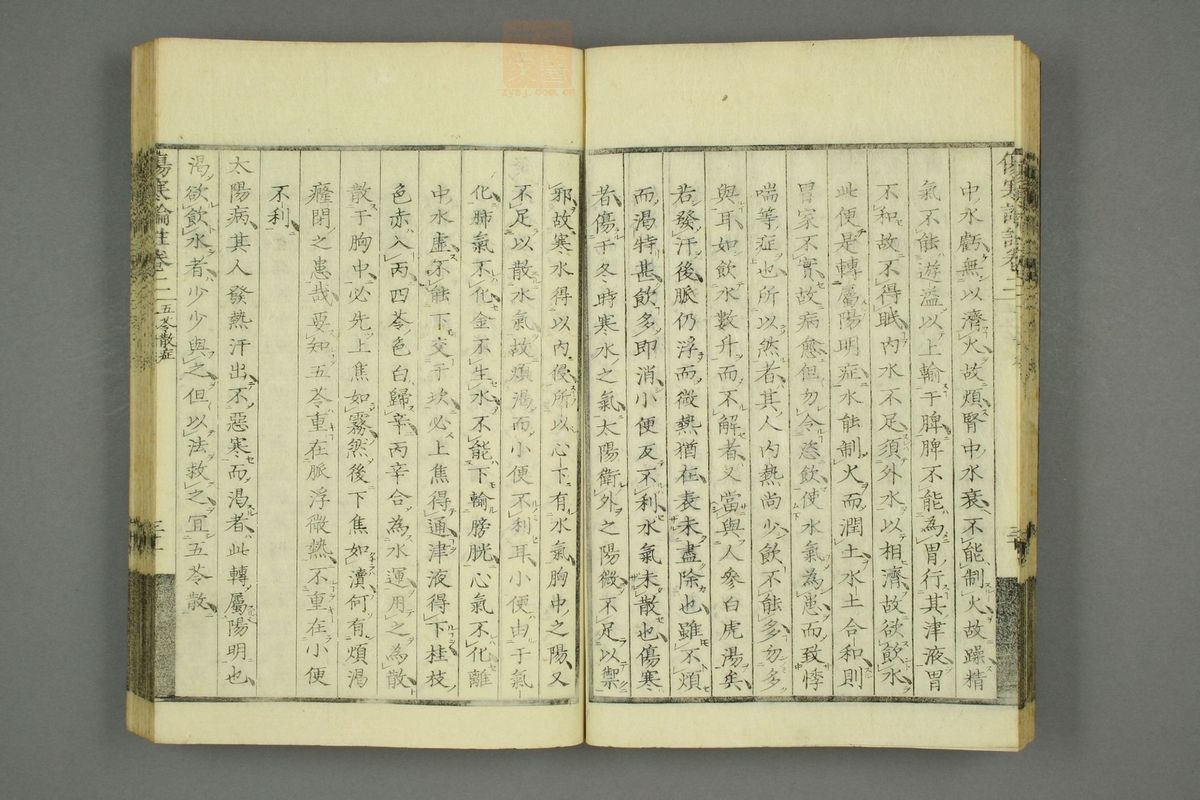 中水虧無以濟火故煩腎中水衰不能制火故躁精
氣不能遊溢以上輸于脾脾不能為胃行其津液胃
不和故不得眠內水不足須外水以相濟故欲飲水
此便是轉屬陽明症水能制火而潤土水土合和則
胃家不實故病愈但勿令恣飲使水氣為患而致悸
喘等症也所以然者其人內熱尚少飲不能多勿多
與耳如飲水數升而不解者又當與人參白虎湯矣
若發汗後脈仍浮而微熱猶在表未盡除也雖不煩
而渴特甚飲多即消小便反不利水氣未散也傷寒
者傷于冬時寒水之氣太陽衛外之陽微不足以禦
邪故寒水得以內侵所以心下有水氣胸中之陽又
不足以散水氣故煩渴而小便不利耳小便由于氣
化肺氣不化金不生水不能下輸膀胱心氣不化離
中水虛不能下交于坎必上焦得通津液得下桂枝
色赤入丙四苓色白歸辛丙辛合為水運用之為散
散于胸中必先上焦如霧然後下焦如瀆何有煩渴
癃閉之患哉要知五苓重在脈浮微熱不重在小便
不利
太陽病其人發熱汗出不惡寒而渴者此轉屬陽明也
渴欲飲水者少少與之但以法救之宜五苓散
傷寒論註卷二 五苓散症